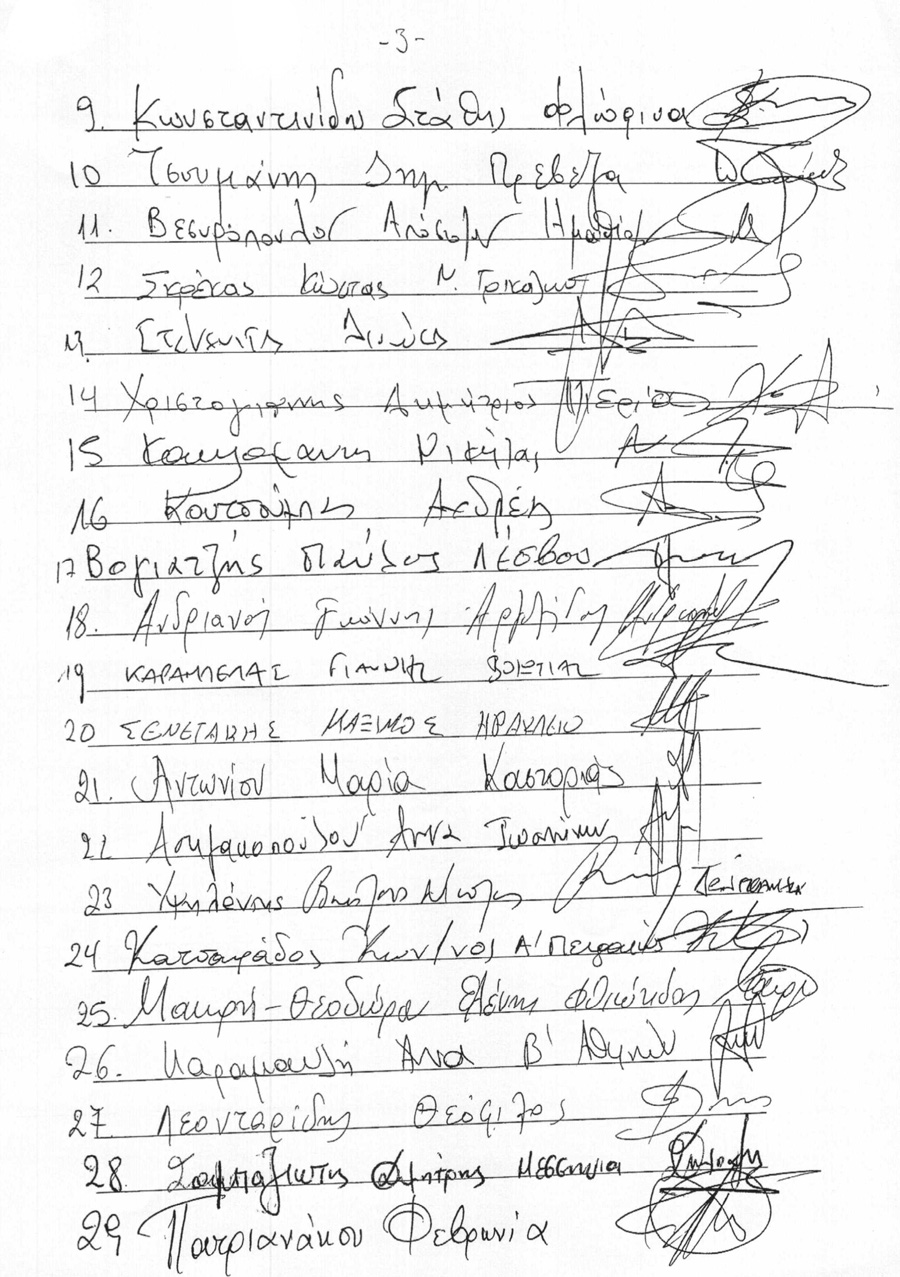 -3-
9. Κωνσταντινίδης Στάθης Φλώρινα
10 Τσουμάνης Δημ Πρέβεζα
11. Βεσυρόπουλος Απόστολος Ημαθία
12 Σκρέκας Κώστας Ν. Τρικάλων
13.
14 Χριστογιάννης Δημήτριος Πιερία
15 Κακλαμάνης Νικήτας
16 Ανδρέας
17 Βογιατζής Παύλος Λέσβου
18. Ανδριανός Γιάννης Αργολίδα
19 ΚΑΡΑΜΠΕΛΑΣ ΓΙΑΝΝΗΣ ΒΟΙΩΤΙΑΣ
20 ΣΕΝΕΤΑΚΗΣ ΜΑΞΙΜΟΣ ΗΡΑΚΛΕΙΟ
21. Αντωνίου Μαρία Καστοριάς
22 Ασημακοπούλου Άννα Ιωαννίνων
23 Υψηλάντης
24 Κατσαφάδος Κων/νος Α' Πειραιώς
25. Μακρή-Θεοδώρου Ελένη Φθιώτιδος
26. Καραμανλή Άννα Β' Αθηνών
27. Λεονταρίδης Θεόφιλος
28. Σαμπαζιώτης Δημήτρης ΜΕΣΣΗΝΙΑ
29 Πατριανάκου Φεβρωνία